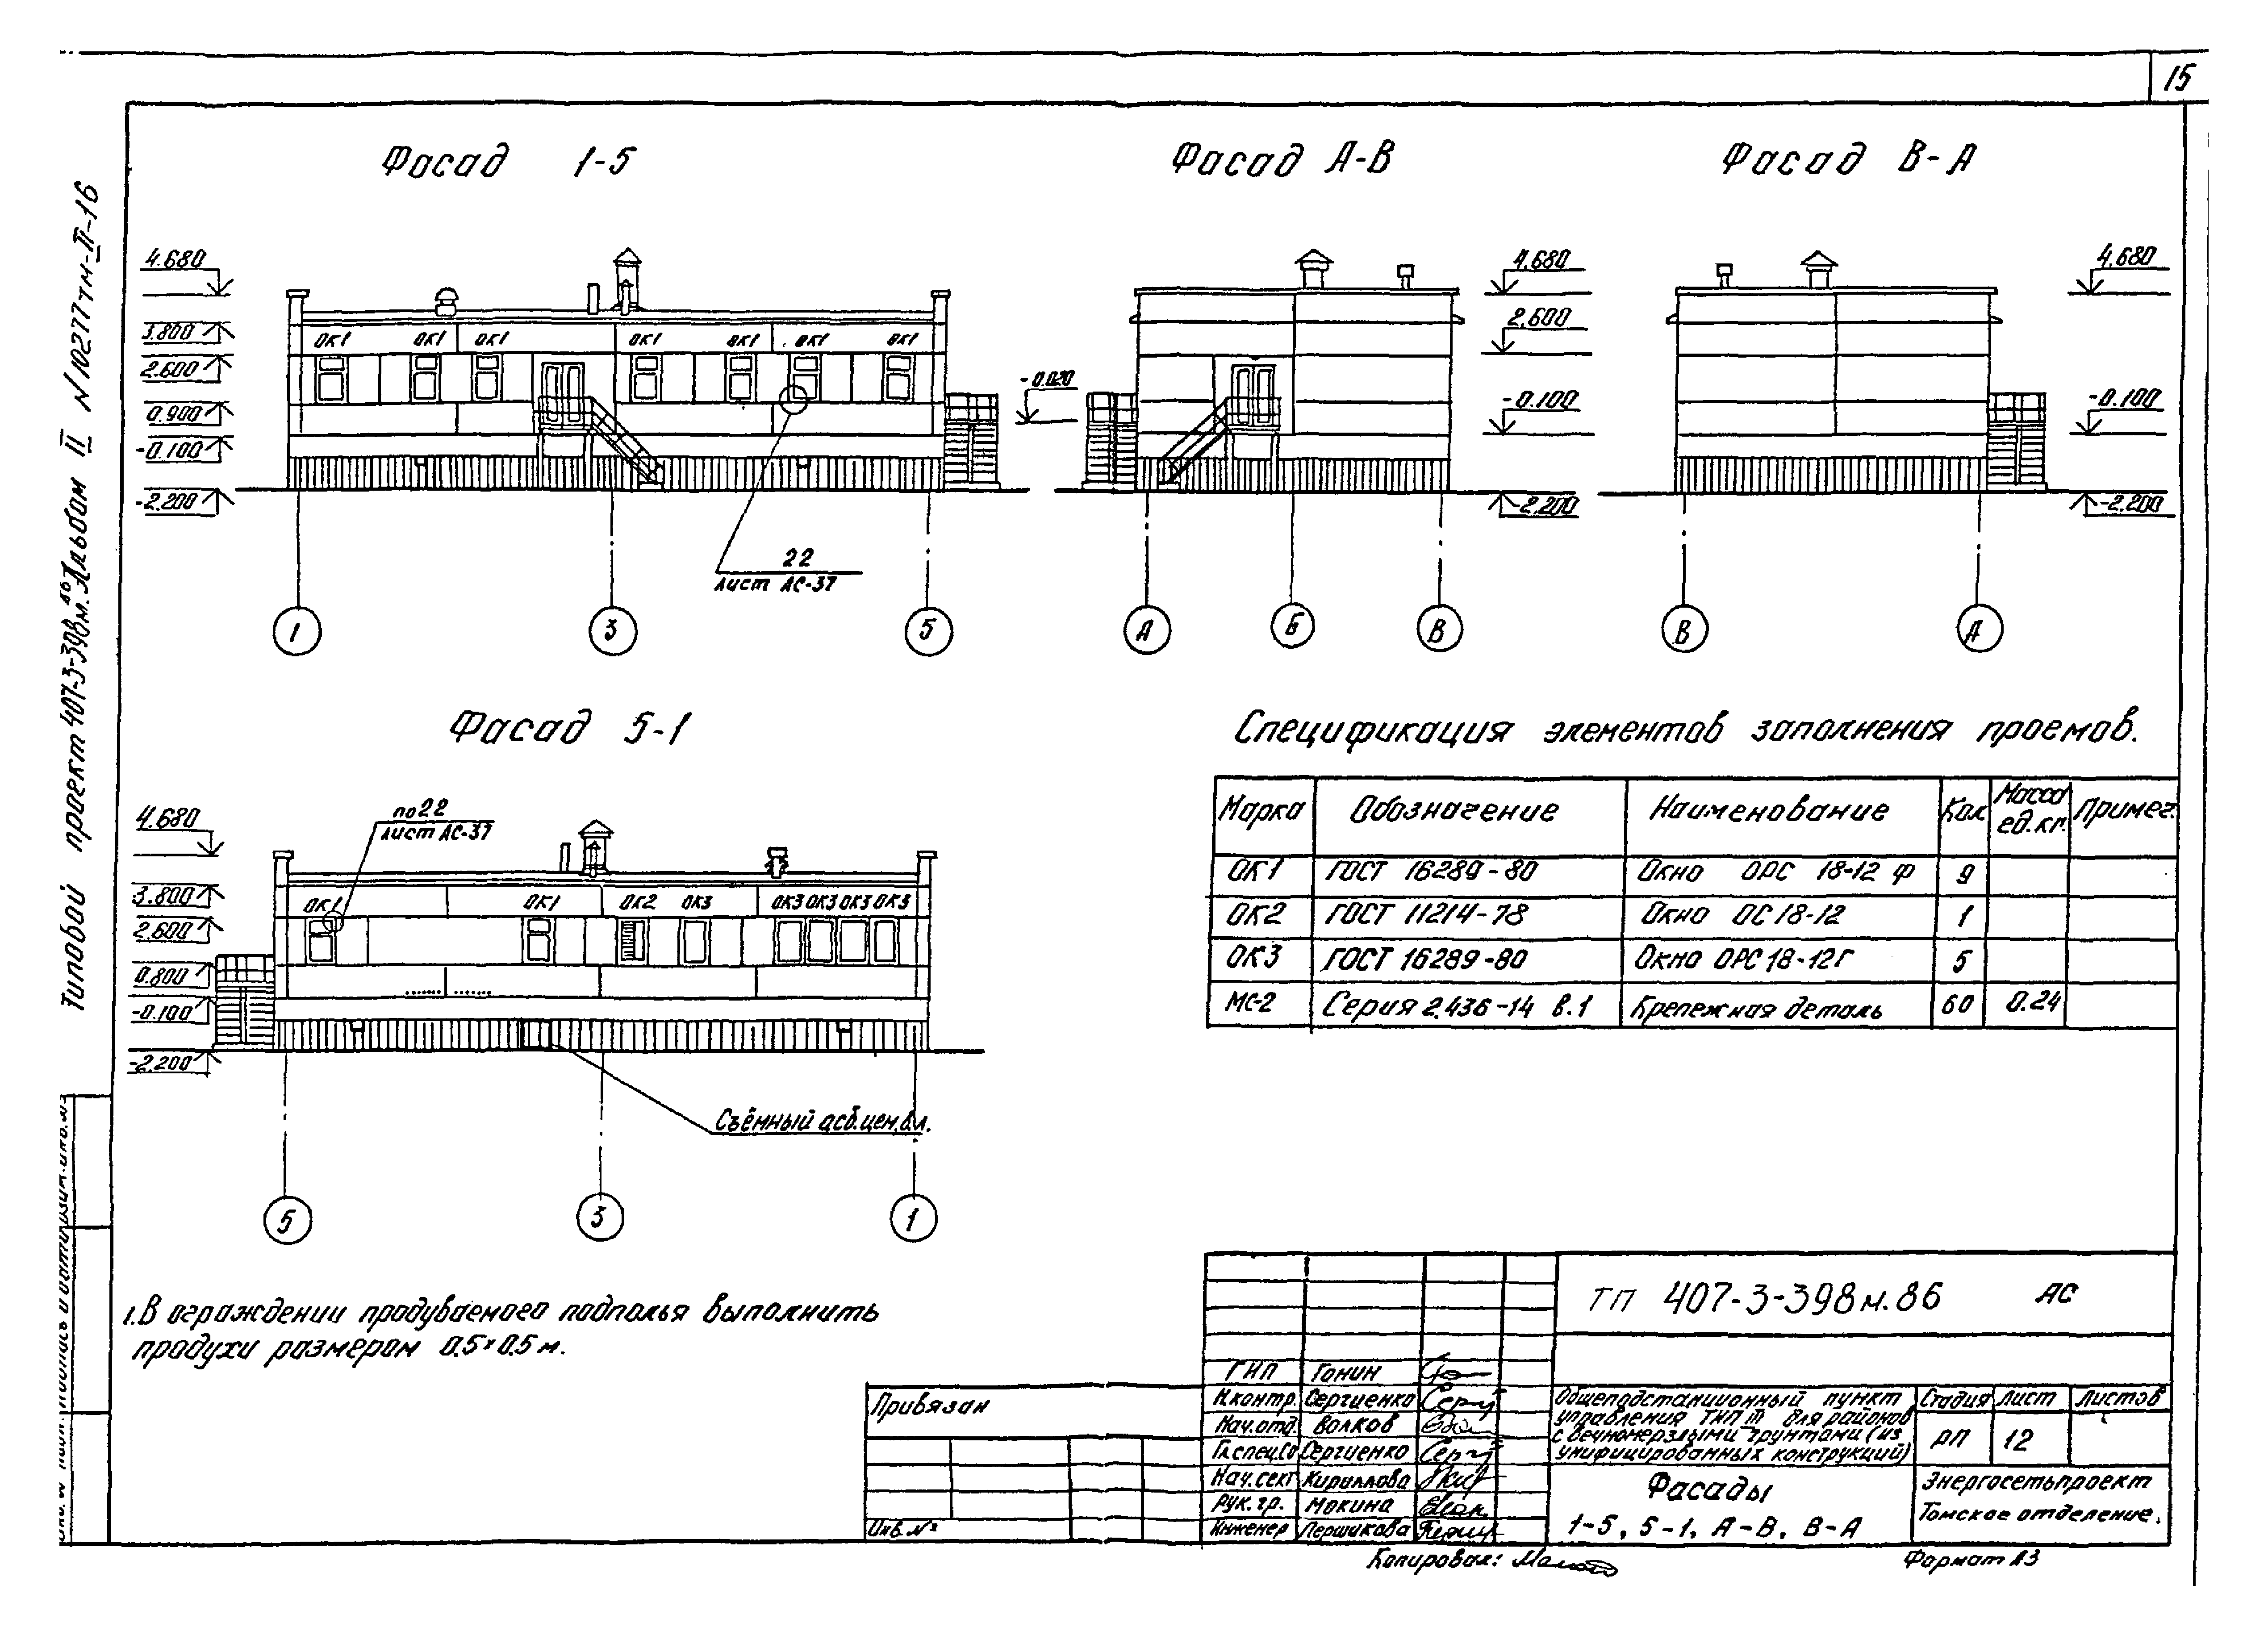 15
Типовой проект 407-3-398м.86 Альбом II N10277тм-II-16
Фасад 1-5
4.680
3.800
2.600
0.900
-0.100
-2.200
ОК1 ОК1 ОК1 ОК1 ОК1 ОК1 ОК1
22
лист АС-37
1 3 5
Фасад А-В
-0.020
4.680
2.600
-0.100
-2.200
А Б В
Фасад В-А
4.680
-0.100
-2.200
В А
Фасад 5-1
по 22
лист АС-37
4.680
3.800
2.600
0.800
-0.100
-2.200
ОК1 ОК1 ОК2 ОК3 ОК3 ОК3 ОК3 ОК3
Съёмный асб.цем.в.л.
5 3 1
Спецификация элементов заполнения проемов.
Марка Обозначение Наименование Кол. Масса ед.кг. Примеч.
ОК1 ГОСТ 16289-80 Окно ОРС 18-12 Ф 9
ОК2 ГОСТ 11214-78 Окно ОС 18-12 1
ОК3 ГОСТ 16289-80 Окно ОРС 18-12Г 5
МС-2 Серия 2.436-14 в.1 Крепежная деталь 60 0.24
1. В ограждении продуваемого подполья выполнить
продухи размером 0.5х0.5м.
Привязан
Инв.№
ТП 407-3-398м.86 АС
ГИП Гонин
Н.контр. Сергиенко
Нач.отд. Волков
Гл.спец.со Сергиенко
Нач.сект Кириллова
Рук.гр. Мокина
Инженер Першикова
Общеподстанционный пункт
управления ТИП III для районов
с вечномерзлыми грунтами (из
унифицированных конструкций)
Стадия Лист Листов
РП 12
Фасады
1-5, 5-1, А-В, В-А
Энергосетьпроект
Томское отделение.
Копировал:
Формат А3